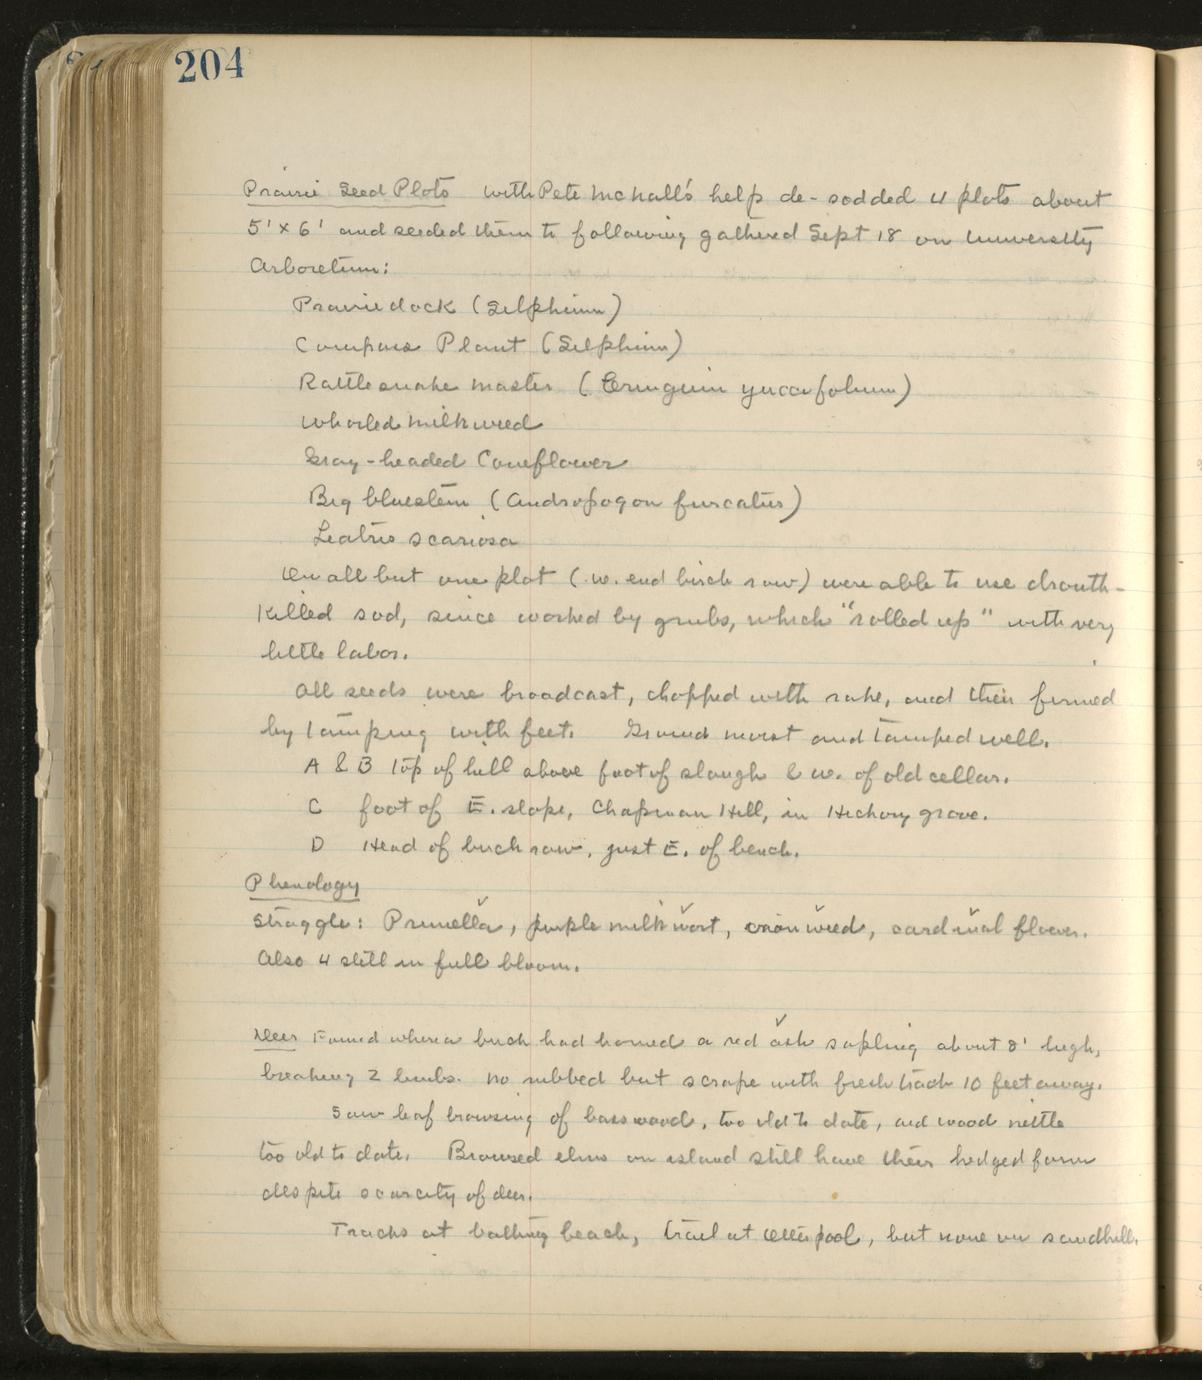 204
Prairie Seed Plots with Pete McNall's help de-sodded 4 plots about
5' x 6' and seeded them to following gathered Sept 18 on University
Arboretum:
Prairie dock (Silphium)
Compass Plant (Silphium)
Rattlesnake master (Eryngium yuccafolium)
Whorled milkweed
Gray-headed Coneflower
Big bluestem (Andropogon furcatus)
Liatris scariosa
On all but one plot (w. end birch row) were able to use drouth-
killed sod, since worked by grubs, which "rolled up" with very
little labor.
All seeds were broadcast, chopped with rake, and then firmed
by tamping with feet. Ground moist and tamped well.
A & B top of hill above foot of slough & w. of old cellar.
C foot of E. slope, Chapman Hill, in Hickory grove.
D Head of birch row, just E. of bench.
Phenology
Straggle: Prunella, purple milkwort, weed, cardinal flower.
Also 4 still in full bloom.
Deer Found where a buck had horned a red ash sapling about 8' high,
breaking 2 limbs. No rubbed but scrape with fresh track 10 feet away.
Saw leaf browsing of basswood, too old to date, and wood nettle
too old to date. Browsed elms on island still have their hedged form
despite scarcity of deer.
Tracks at bathing beach, trail at Otter pool, but none on sandhill.